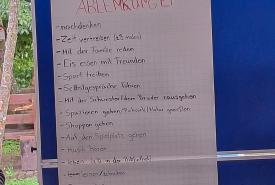 ABLENKUNG
- nachdenken
- Zeit vertreiben
- Mit der Familie reden
- Eis essen mit Freunden
- Sport treiben
- Selbstgespräche führen
- Mit der Schwester/dem Bruder rausgehen
- Spazieren gehen/
- Shoppen gehen
- Auf den Spielplatz gehen
- Musik hören